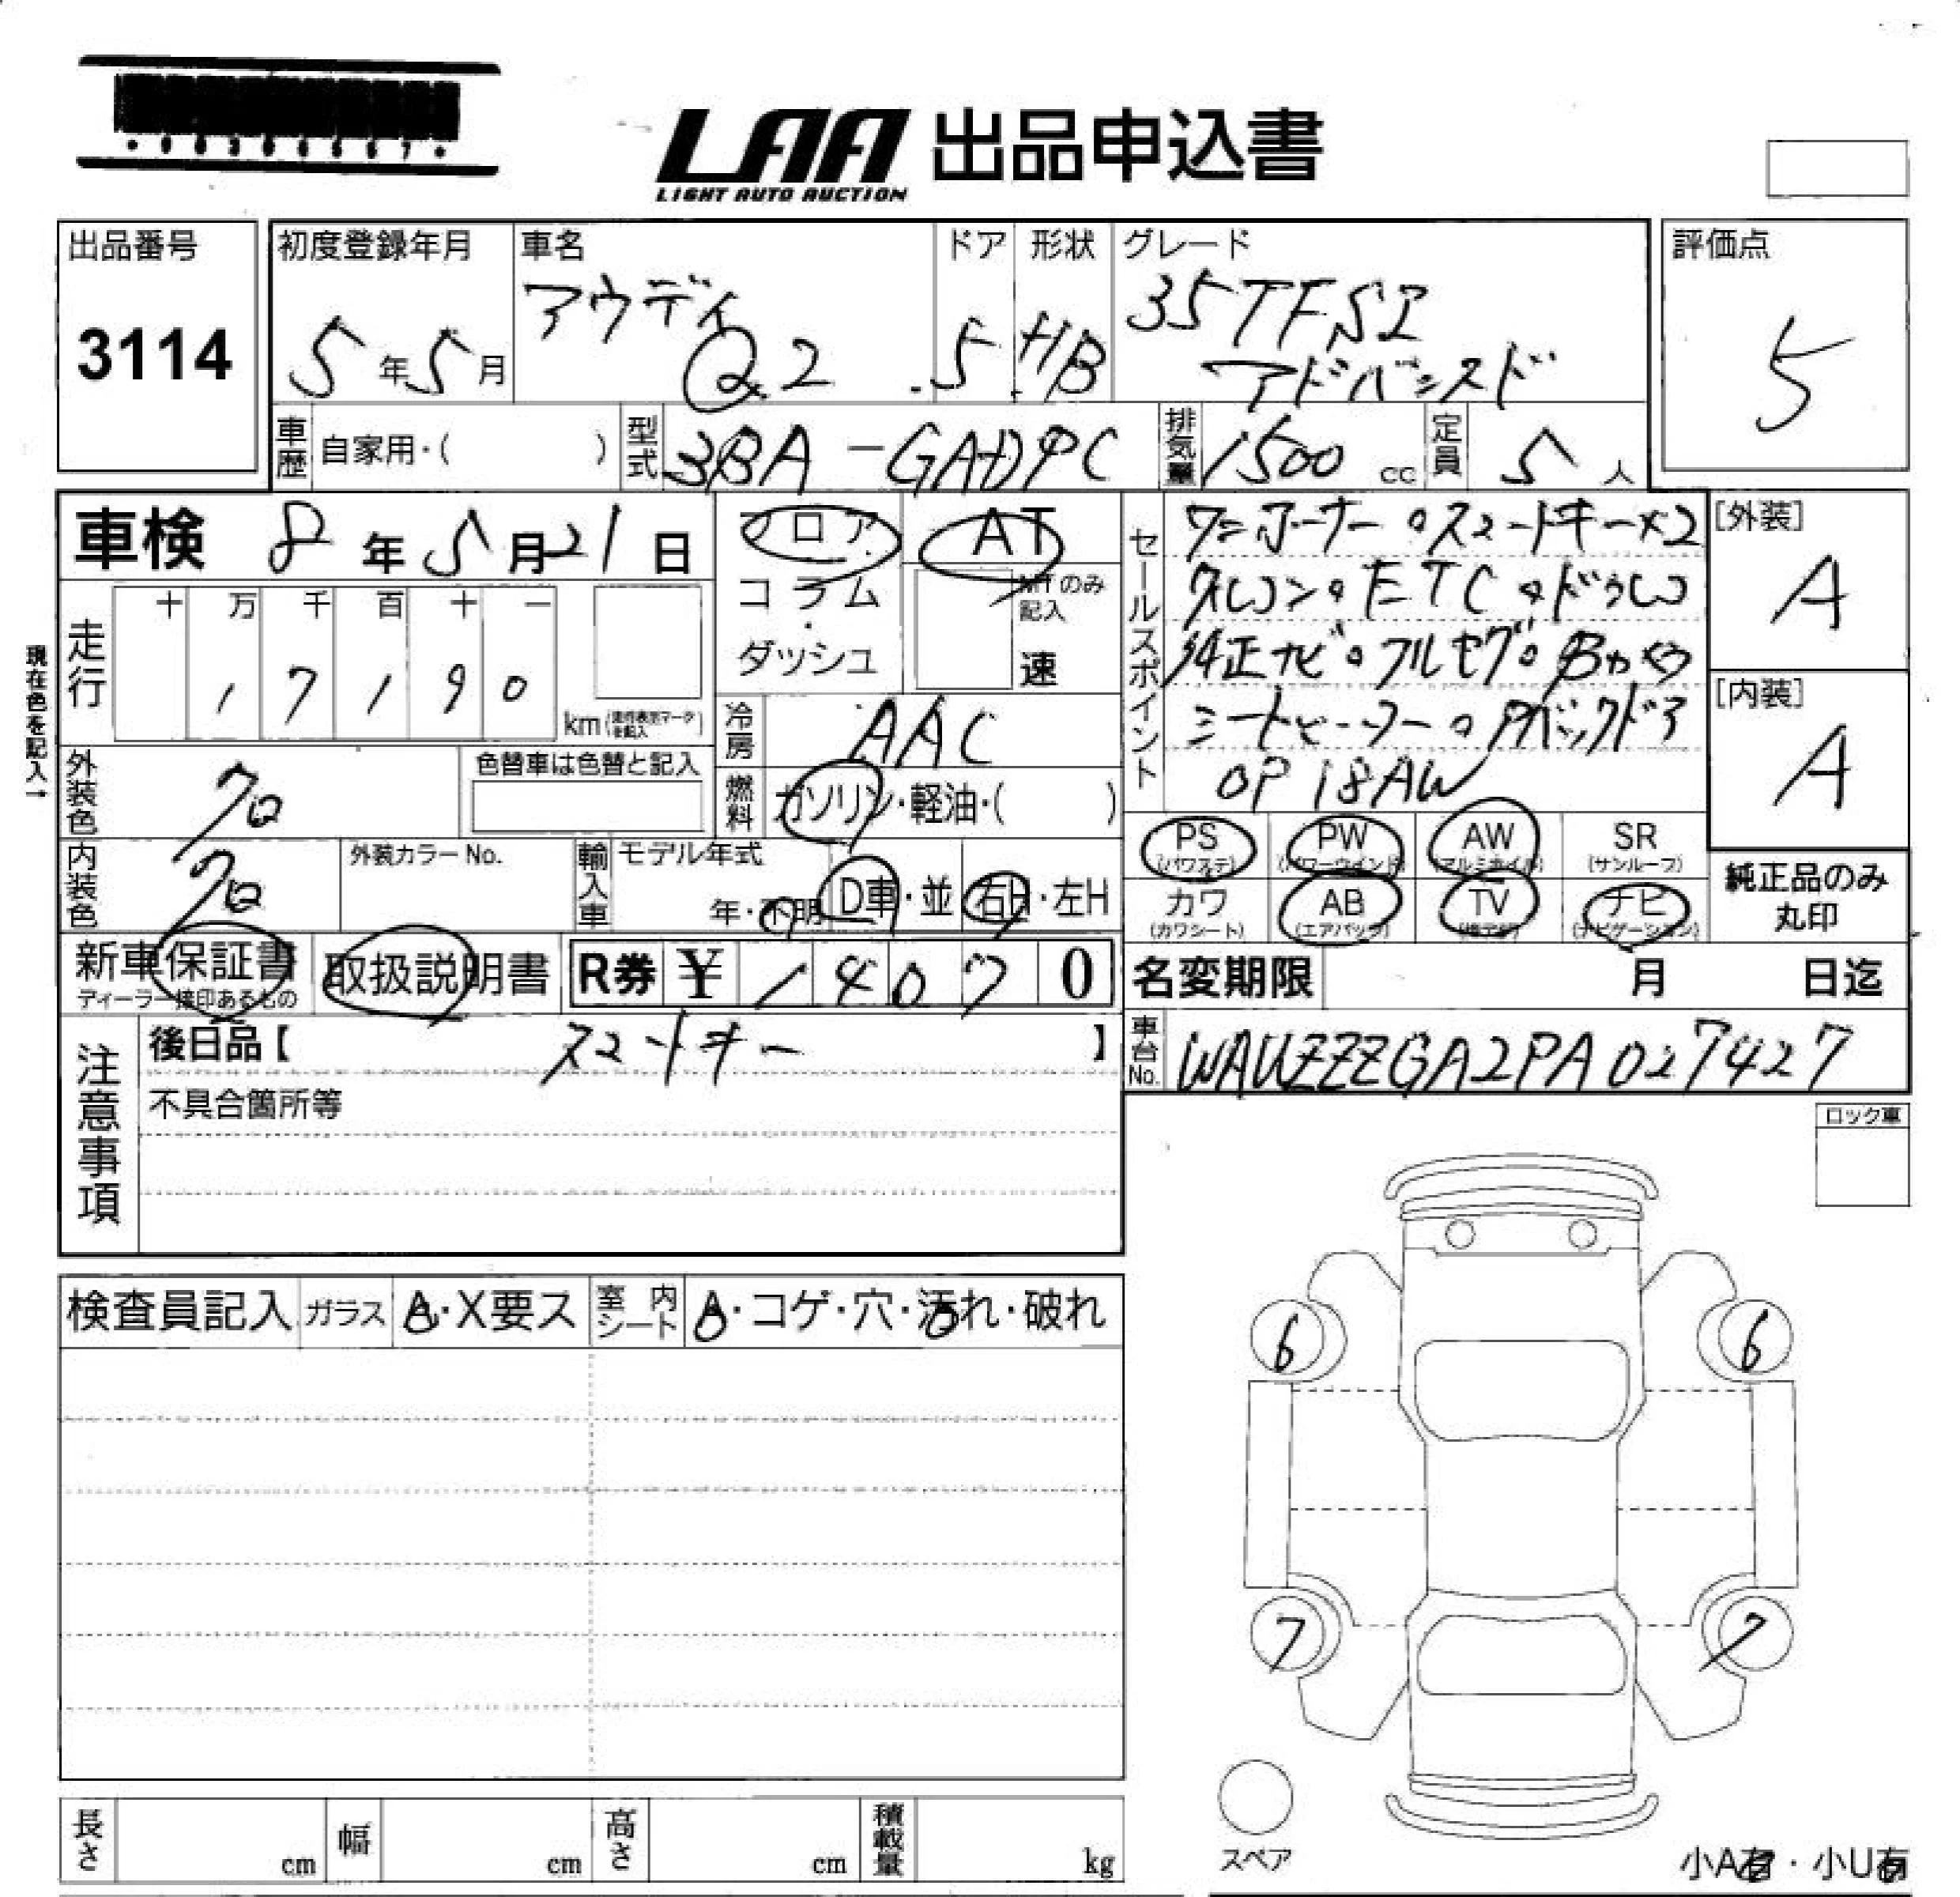 LAA 出品申込書
LIGHT AUTO AUCTION
出品番号
3114
初度登録年月
5年5月
車名
アウディ
Q2
ドア
5
形状
HB
グレード
35TFSI
アドバンスド
評価点
5
車歴 自家用・( )
型式 3BA-GADPC
排気量 1500 cc
定員 5 人
車検 8年5月21日
フロア
コラム
ダッシュ
AT
MTのみ
記入
速
セールスポイント
ワンオーナー。スマートキー×2
ETC
純正ナビ。フルセグ。Bカメラ
シートヒーター。Pバックドア
OP 18AW
[外装]
A
[内装]
A
現在色を記入→
走行
十 万 千 百 十 一
1 7 1 9 0
km
冷房 AAC
燃料 ガソリン・軽油・( )
外装色 クロ
色替車は色替と記入
内装色 クロ
外装カラーNo.
輸入車 モデル年式
年・不明 D車・並 右H・左H
PS (パワステ) PW (パワーウインド) AW (アルミホイル) SR (サンルーフ)
カワ (カワシート) AB (エアバック) TV ナビ (ナビゲーション)
純正品のみ
丸印
新車保証書
ディーラー捺印あるもの
取扱説明書
R券 ¥ 1 4 0 7 0
名変期限 月 日迄
注意事項
後日品【 スマートキー 】
不具合箇所等
車台No. WAUZZZGA2PA027427
ロック車
検査員記入 ガラス A・X要ス 室内シート A・コゲ・穴・汚れ・破れ
6 6
7 7
スペア
長さ cm 幅 cm 高さ cm 積載量 kg
小A有・小U有